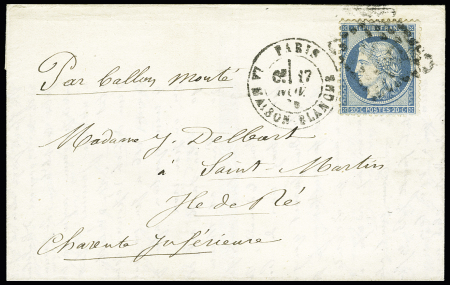 Par Ballon Monté
PARIS
17
NOV.
LA MAISON BLANCHE
REPUB. FRANC.
20 C POSTES 20 C
Madame J. Delbart
à Saint-Martin
Ile de Ré
Charente Inférieure